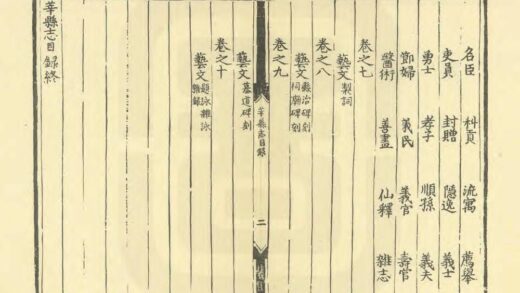 名臣 科貢 流寓 薦舉
吏員 封贈 隱逸 義士
勇士 孝子 順孫 義夫
節婦 義民 義官 壽官
醫術 善畫 仙釋 雜志
卷之七
藝文 製詞
卷之八
藝文 縣治碑刻 祠廟碑刻
卷之九
莘縣志目錄 二
藝文 墓道碑刻
卷之十
藝文 題詠雜詠 雜錄
莘縣志目錄終